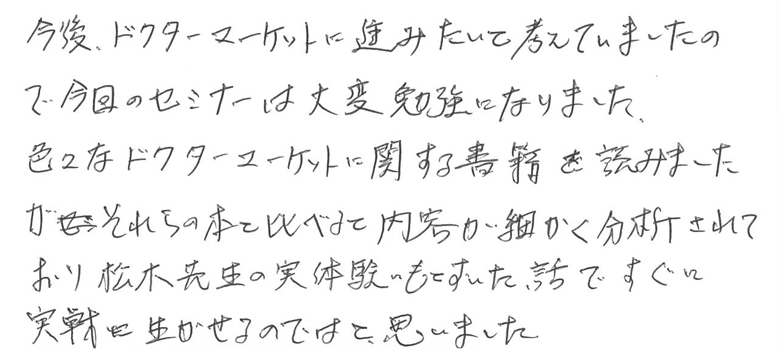 今後、ドクターマーケットに進みたいと考えていましたの
で今回のセミナーは大変勉強になりました、
色々なドクターマーケットに関する書籍を読みました
がそれらの本と比べると内容が細かく分析されて
おり松木先生の実体験にもとずいた話ですぐに
実戦に生かせるのではと、思いました